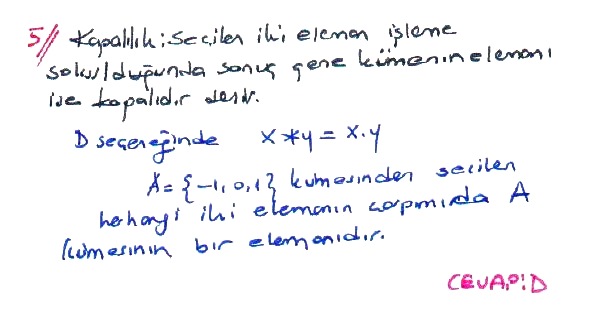 5// Kapalılık: seçilen iki eleman işleme
sokulduğunda sonuç gene kümenin elemanı
ise kapalıdır denir.
D seçeneğinde x*y = x.y
A = {-1, 0, 1} kümesinden seçilen
herhangi iki elemanın çarpımıda A
kümesinin bir elemanıdır.
CEVAP: D